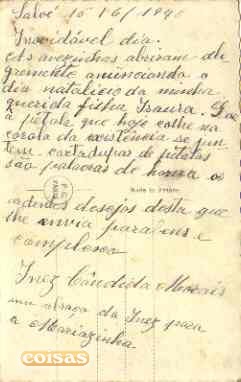 Salvé 15/6/194
Inovidável dia.
As avezinhas abriram ale
gremente anunciando o
dia natalicio da minha
querida filha Isaura. Que
a pétala que hoje colhe na
corola da existência se jun
tem de petalas
são palavras de honra os
ardentes desejos desta que
lhe envia parabens e
Inez Cândida Morais
um abraço da Inez para
a Mariazinha
coisas